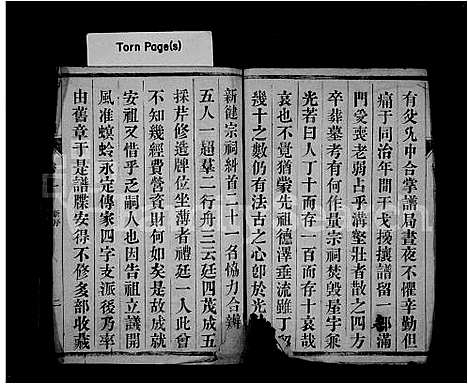 Torn Page(s)
有爻先中合掌譜局晝夜不懼辛勤但
痛于同治年間干戈擾攘譜留一部滿
門受喪老弱占乎溝壑壯者散之四方
卒葬墓考有何作量宗祠焚毀屋宇燬
光者曰人丁十而存一百而存十哀哉
哀也不覺猶蒙先祖德澤垂流雖丁
幾十之數仍有法古之心卽於光
新健宗祠糾首二十一名協力合辦
五人一超羣二行舟三云廷四茂成五
採芹修造牌位坐薄者禮廷一人此會
不知幾經費營資財何如矣是故致成
安祖又惜乎乏嗣人也因告祖立議開
風准螟蛉永定傳家四字支派後乃率
由舊章于是譜牒安得不修多部收藏
新序
二